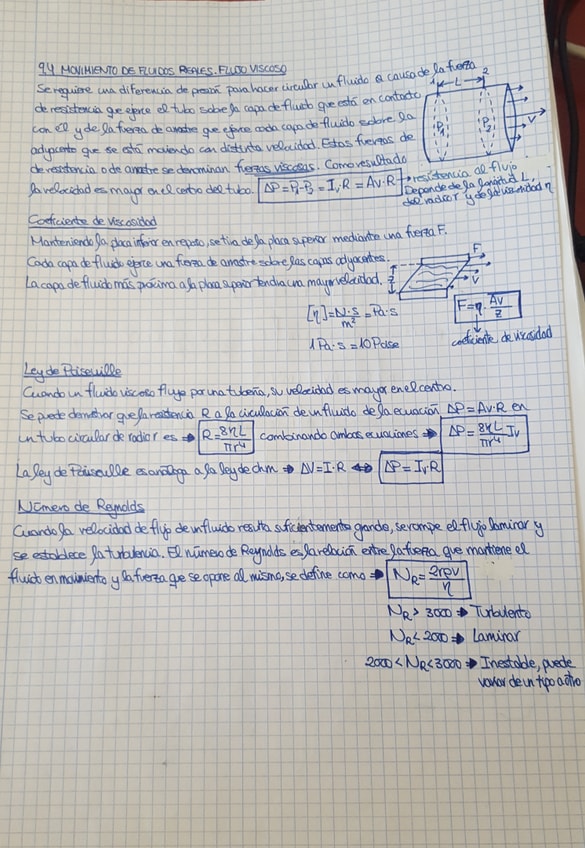 9.4 MOVIMIENTO DE FLUIDOS REALES. FLUJO VISCOSO
Se requiere una diferencia de presión para hacer circular un fluido a causa de la fuerza
de resistencia que ejerce el tubo sobre la capa de fluido que está en contacto
con él y de la fuerza de arrastre que ejerce cada capa de fluido sobre la
adyacente que se está moviendo con distinta velocidad. Estas fuerzas de
de resistencia o de arrastre se denominan fuerzas viscosas. Como resultado
la velocidad es mayor en el centro del tubo. ΔP = P₁-P₂ = Iᵥ R = Av·R
1 L 2
P₁ P₂ V
resistencia al flujo
Depende de la longitud L,
del radio r y de la viscosidad η
Coeficiente de viscosidad
Manteniendo la placa inferior en reposo, se tira de la placa superior mediante una fuerza F.
Cada capa de fluido ejerce una fuerza de arrastre sobre las capas adyacentes.
La capa de fluido más próxima a la placa superior tendría una mayor velocidad.
z F v
[η] = N·s/m² = Pa·s
F = η · Av/z
1 Pa·s = 10 Poise
coeficiente de viscosidad
Ley de Poiseuille
Cuando un fluido viscoso fluye por una tubería, su velocidad es mayor en el centro.
Se puede demostrar que la resistencia R a la circulación de un fluido de la ecuación ΔP = Av·R en
un tubo circular de radio r es ⇒ R = 8ηL/πr⁴ combinando ambas ecuaciones ⇒ ΔP = 8ηL/πr⁴ Iᵥ
La ley de Poiseuille es análoga a la ley de ohm ⇒ ΔV = I·R ⇔ ΔP = Iᵥ·R
Número de Reynolds
Cuando la velocidad de flujo de un fluido resulta suficientemente grande, se rompe el flujo laminar y
se establece la turbulencia. El número de Reynolds es la relación entre la fuerza que mantiene el
fluido en movimiento y la fuerza que se opone al mismo, se define como ⇒ N_R = 2rρv/η
N_R > 3000 ⇒ Turbulento
N_R < 2000 ⇒ Laminar
2000 < N_R < 3000 ⇒ Inestable, puede
variar de un tipo a otro